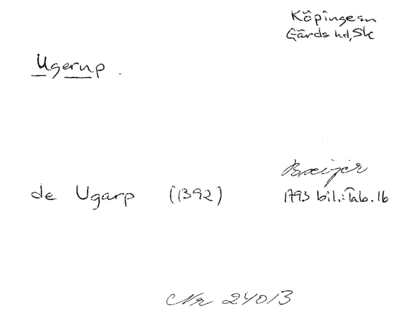 Köpinge sn
Gärds hd, Sk
Ugerup.
de Ugarp (1392)
1793 bil.: Tab. 16
Nr 24013